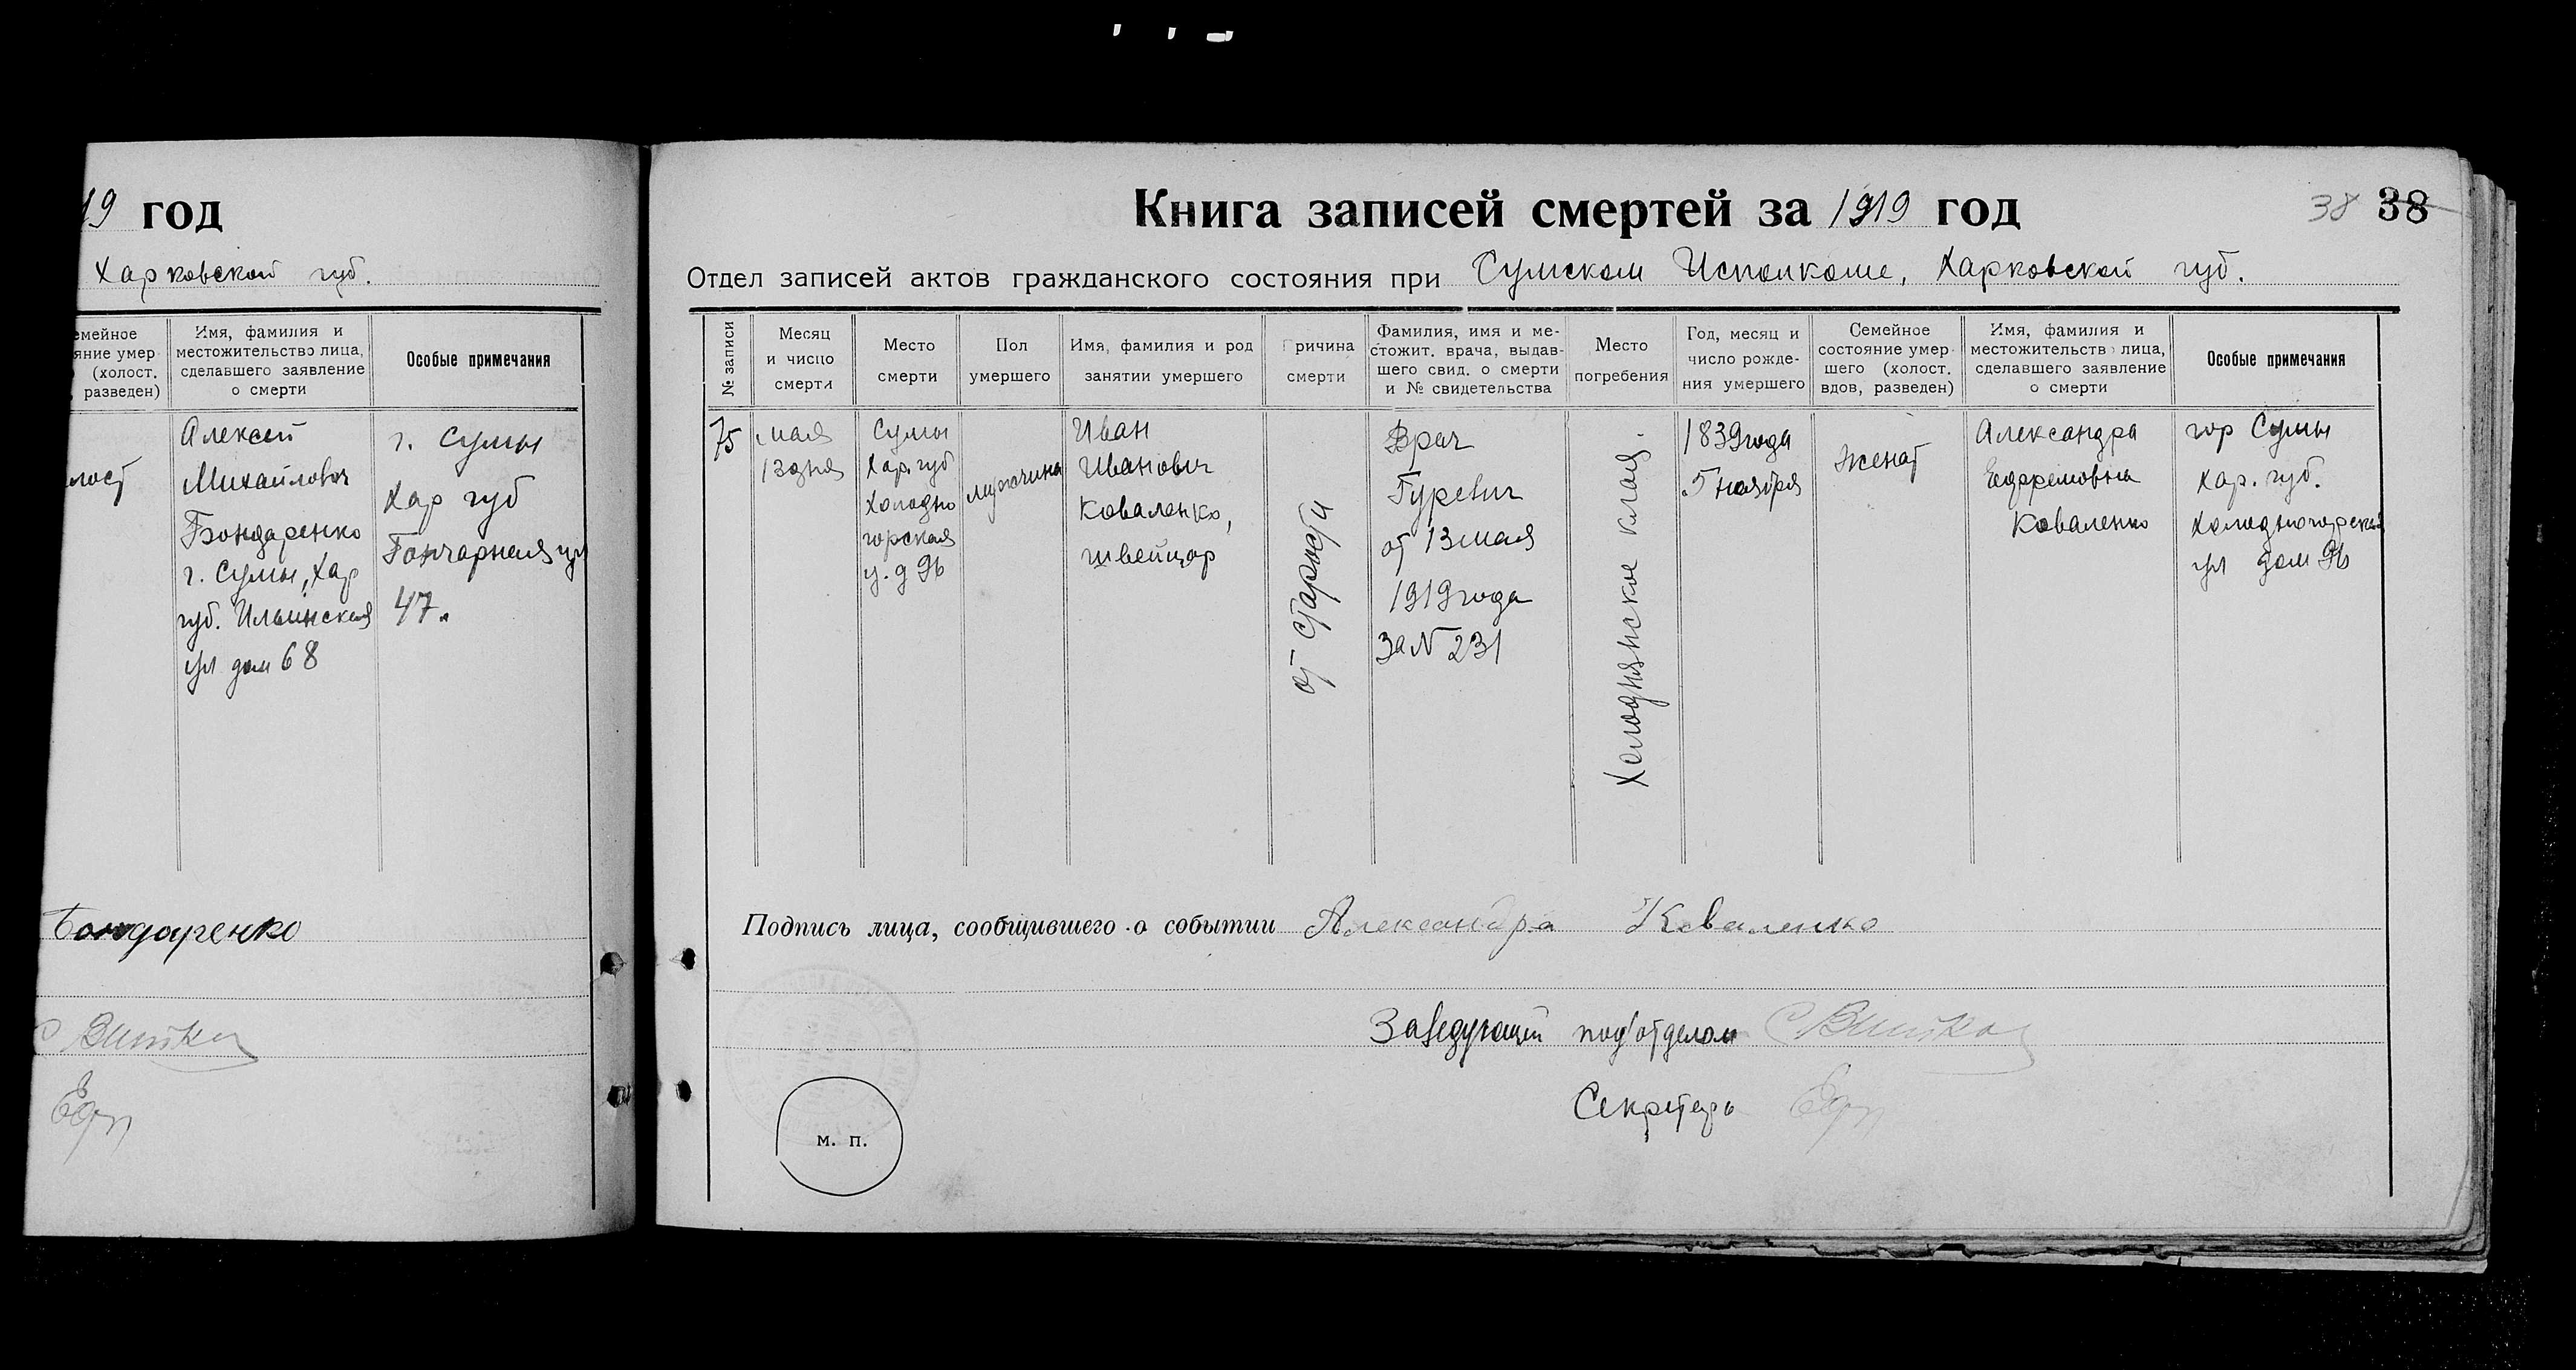 19 год
Харковской губ.
емейное
яние умер
(холост.
, разведен)
Имя, фамилия и
местожительство лица,
сделавшего заявление
о смерти
Особые примечания
лост
Алексей
Михайлович
Бондаренко
г. Сумы, Хар
губ. Ильинская
ул дом 68
г. Сумы
Хар губ
Гончарная ул
47.
Бондаренко
Книга записей смертей за 1919 год
38 38
Отдел записей актов гражданского состояния при Сумском Исполкоме, Харковской губ.
№ записи
Месяц
и чисцо
смерти
Место
смерти
Пол
умершего
Имя, фамилия и род
занятии умершего
Причина
смерти
Фамилия, имя и ме-
стожит. врача, выдав-
шего свид. о смерти
и № свидетельства
Место
погребения
Год, месяц и
число рожде-
ния умершего
Семейное
состояние умер-
шего (холост.
вдов, разведен)
Имя, фамилия и
местожительство лица,
сделавшего заявление
о смерти
Особые примечания
75
мая
13 дня
Сумы
Хар. губ
Холодно
горская
у. д 96
мужчина
Иван
Иванович
Коваленко,
швейцар
от старости
Врач
Гуревич
от 13 мая
1919 года
За N 231
Холоднянское клад.
1839 года
5 ноября
женат
Александра
Ефремовна
Коваленко
гор Сумы
Хар. губ.
Холодногорская
ул дом 96
Подпись лица, сообщившего о событии Александра Коваленко
Заведующий под'отделом
Секретарь
м. п.